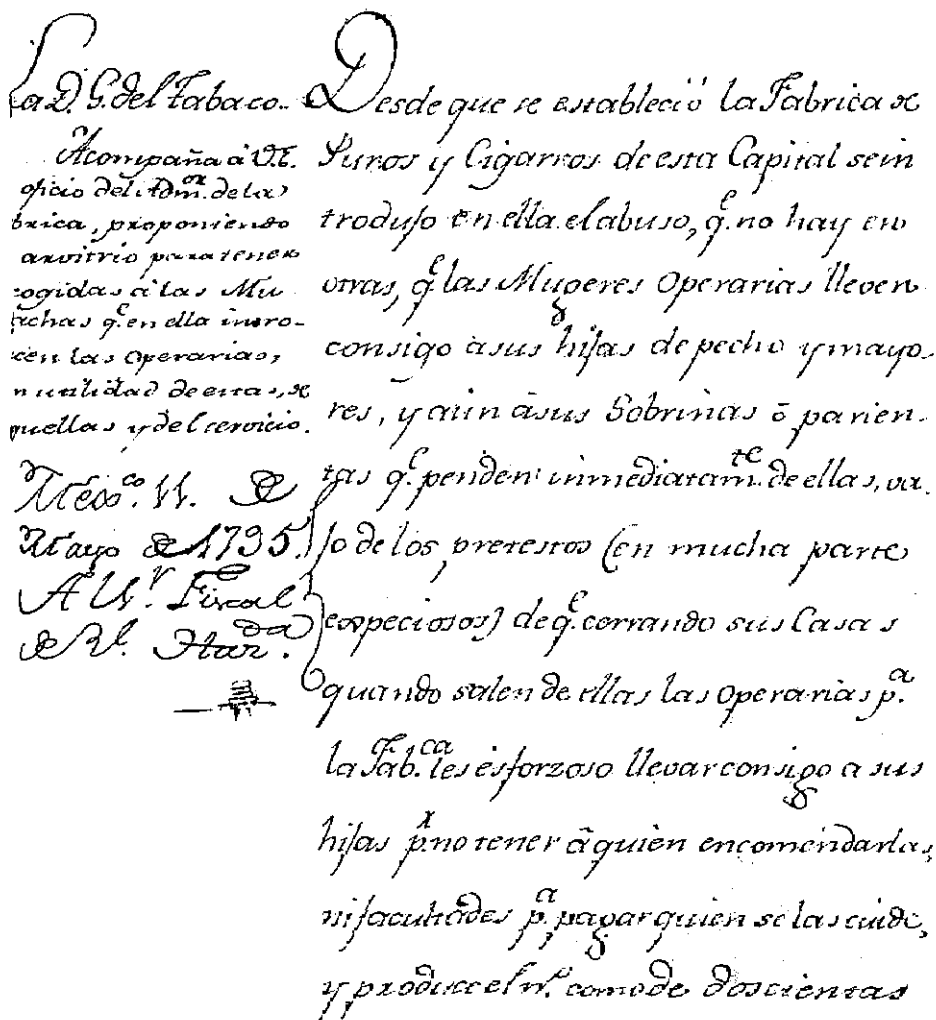 La D. G. del Tabaco.
Acompaña â V.E.
oficio del Adm.or de la
brica, proponiendo
arvitrio para tener
cogidas â las Mu
achas q.e en ella intro-
cen las Operarias,
n utilidad de estas, de
quellas y del servicio.
Mex.co 11. de
Mayo de 1795.
A l S.r Fiscal
de R.l Haz.da
Desde que se estableció la Fabrica de
Puros y Cigarros de esta Capital se in
trodujo en ella el abuso, q.e no hay en
otras, q.e las Mugeres Operarias lleven
consigo â sus hijas de pecho y mayo-
res, y aun â sus Sobrinas ô parien-
tas q.e penden inmediatam.te de ellas, va-
jo de los pretestos (en mucha parte
expeciosos) de q.e cerrando sus Casas
quando salen de ellas las Operarias p.a
la Fab.ca les es forzoso llevar consigo a sus
hijas p.r no tener â quien encomendarlas,
ni facultades p.a pagar quien se las cuide,
y produce el n.o como de doscientas